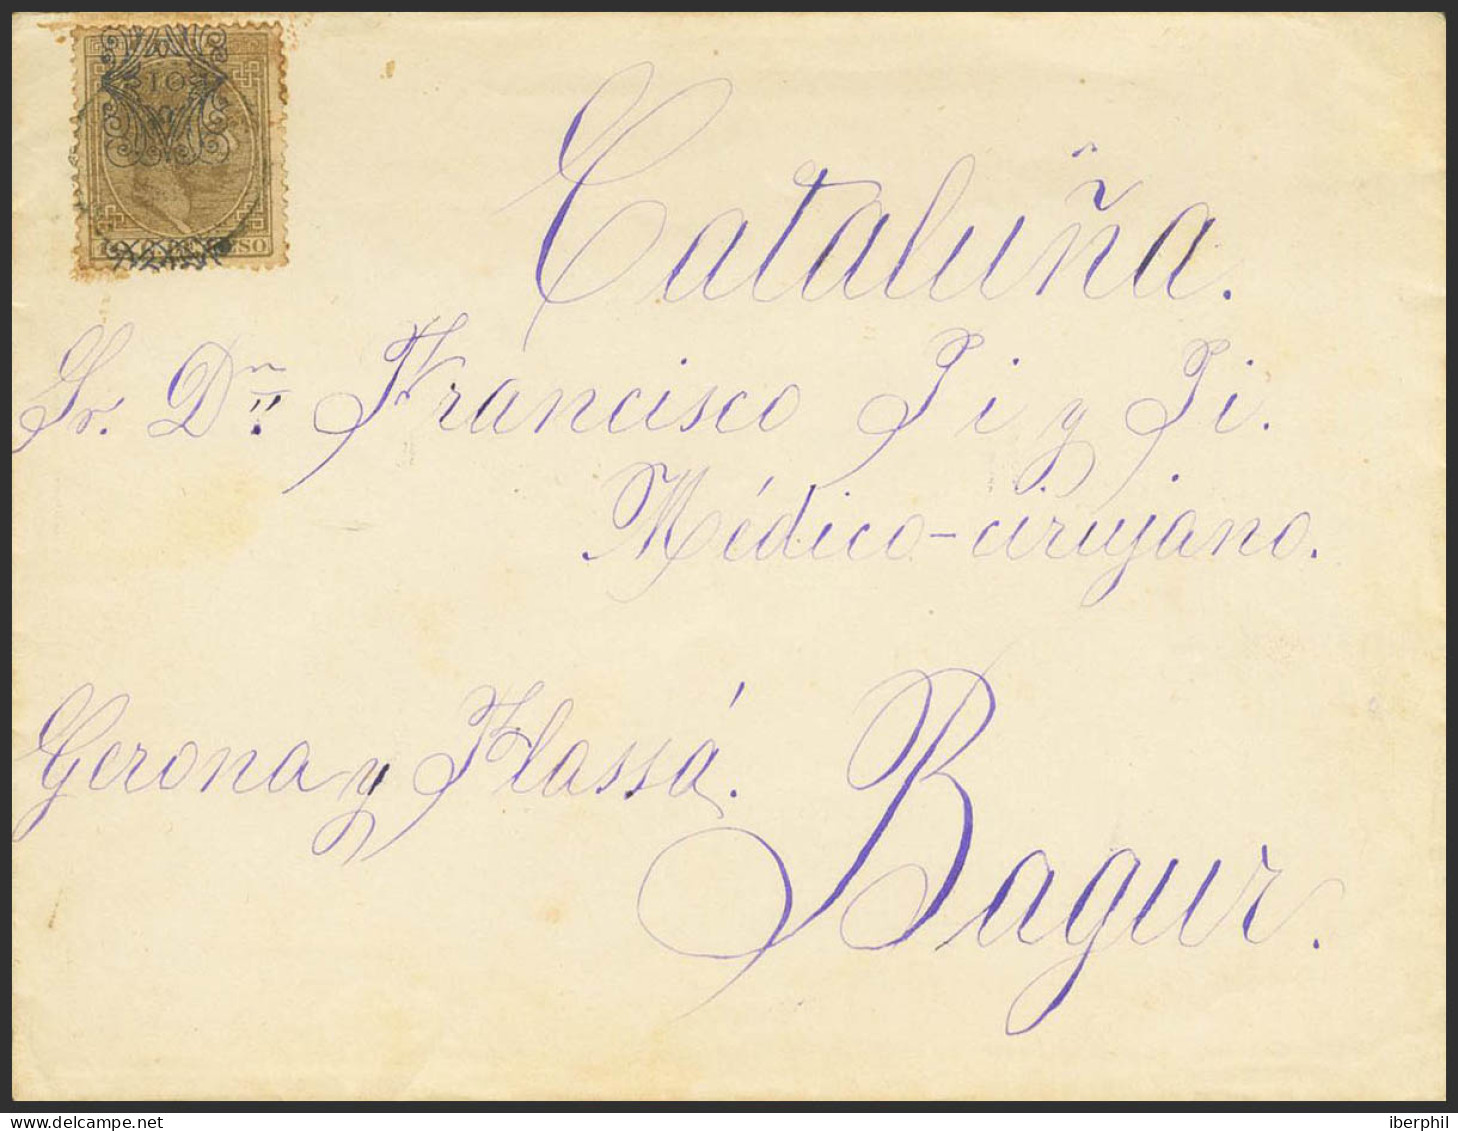 10
Cataluña.
Sr. Dn. Francisco Pi y Pi.
Médico-cirujano.
Gerona y Flassá.
Bagur.
iberphil